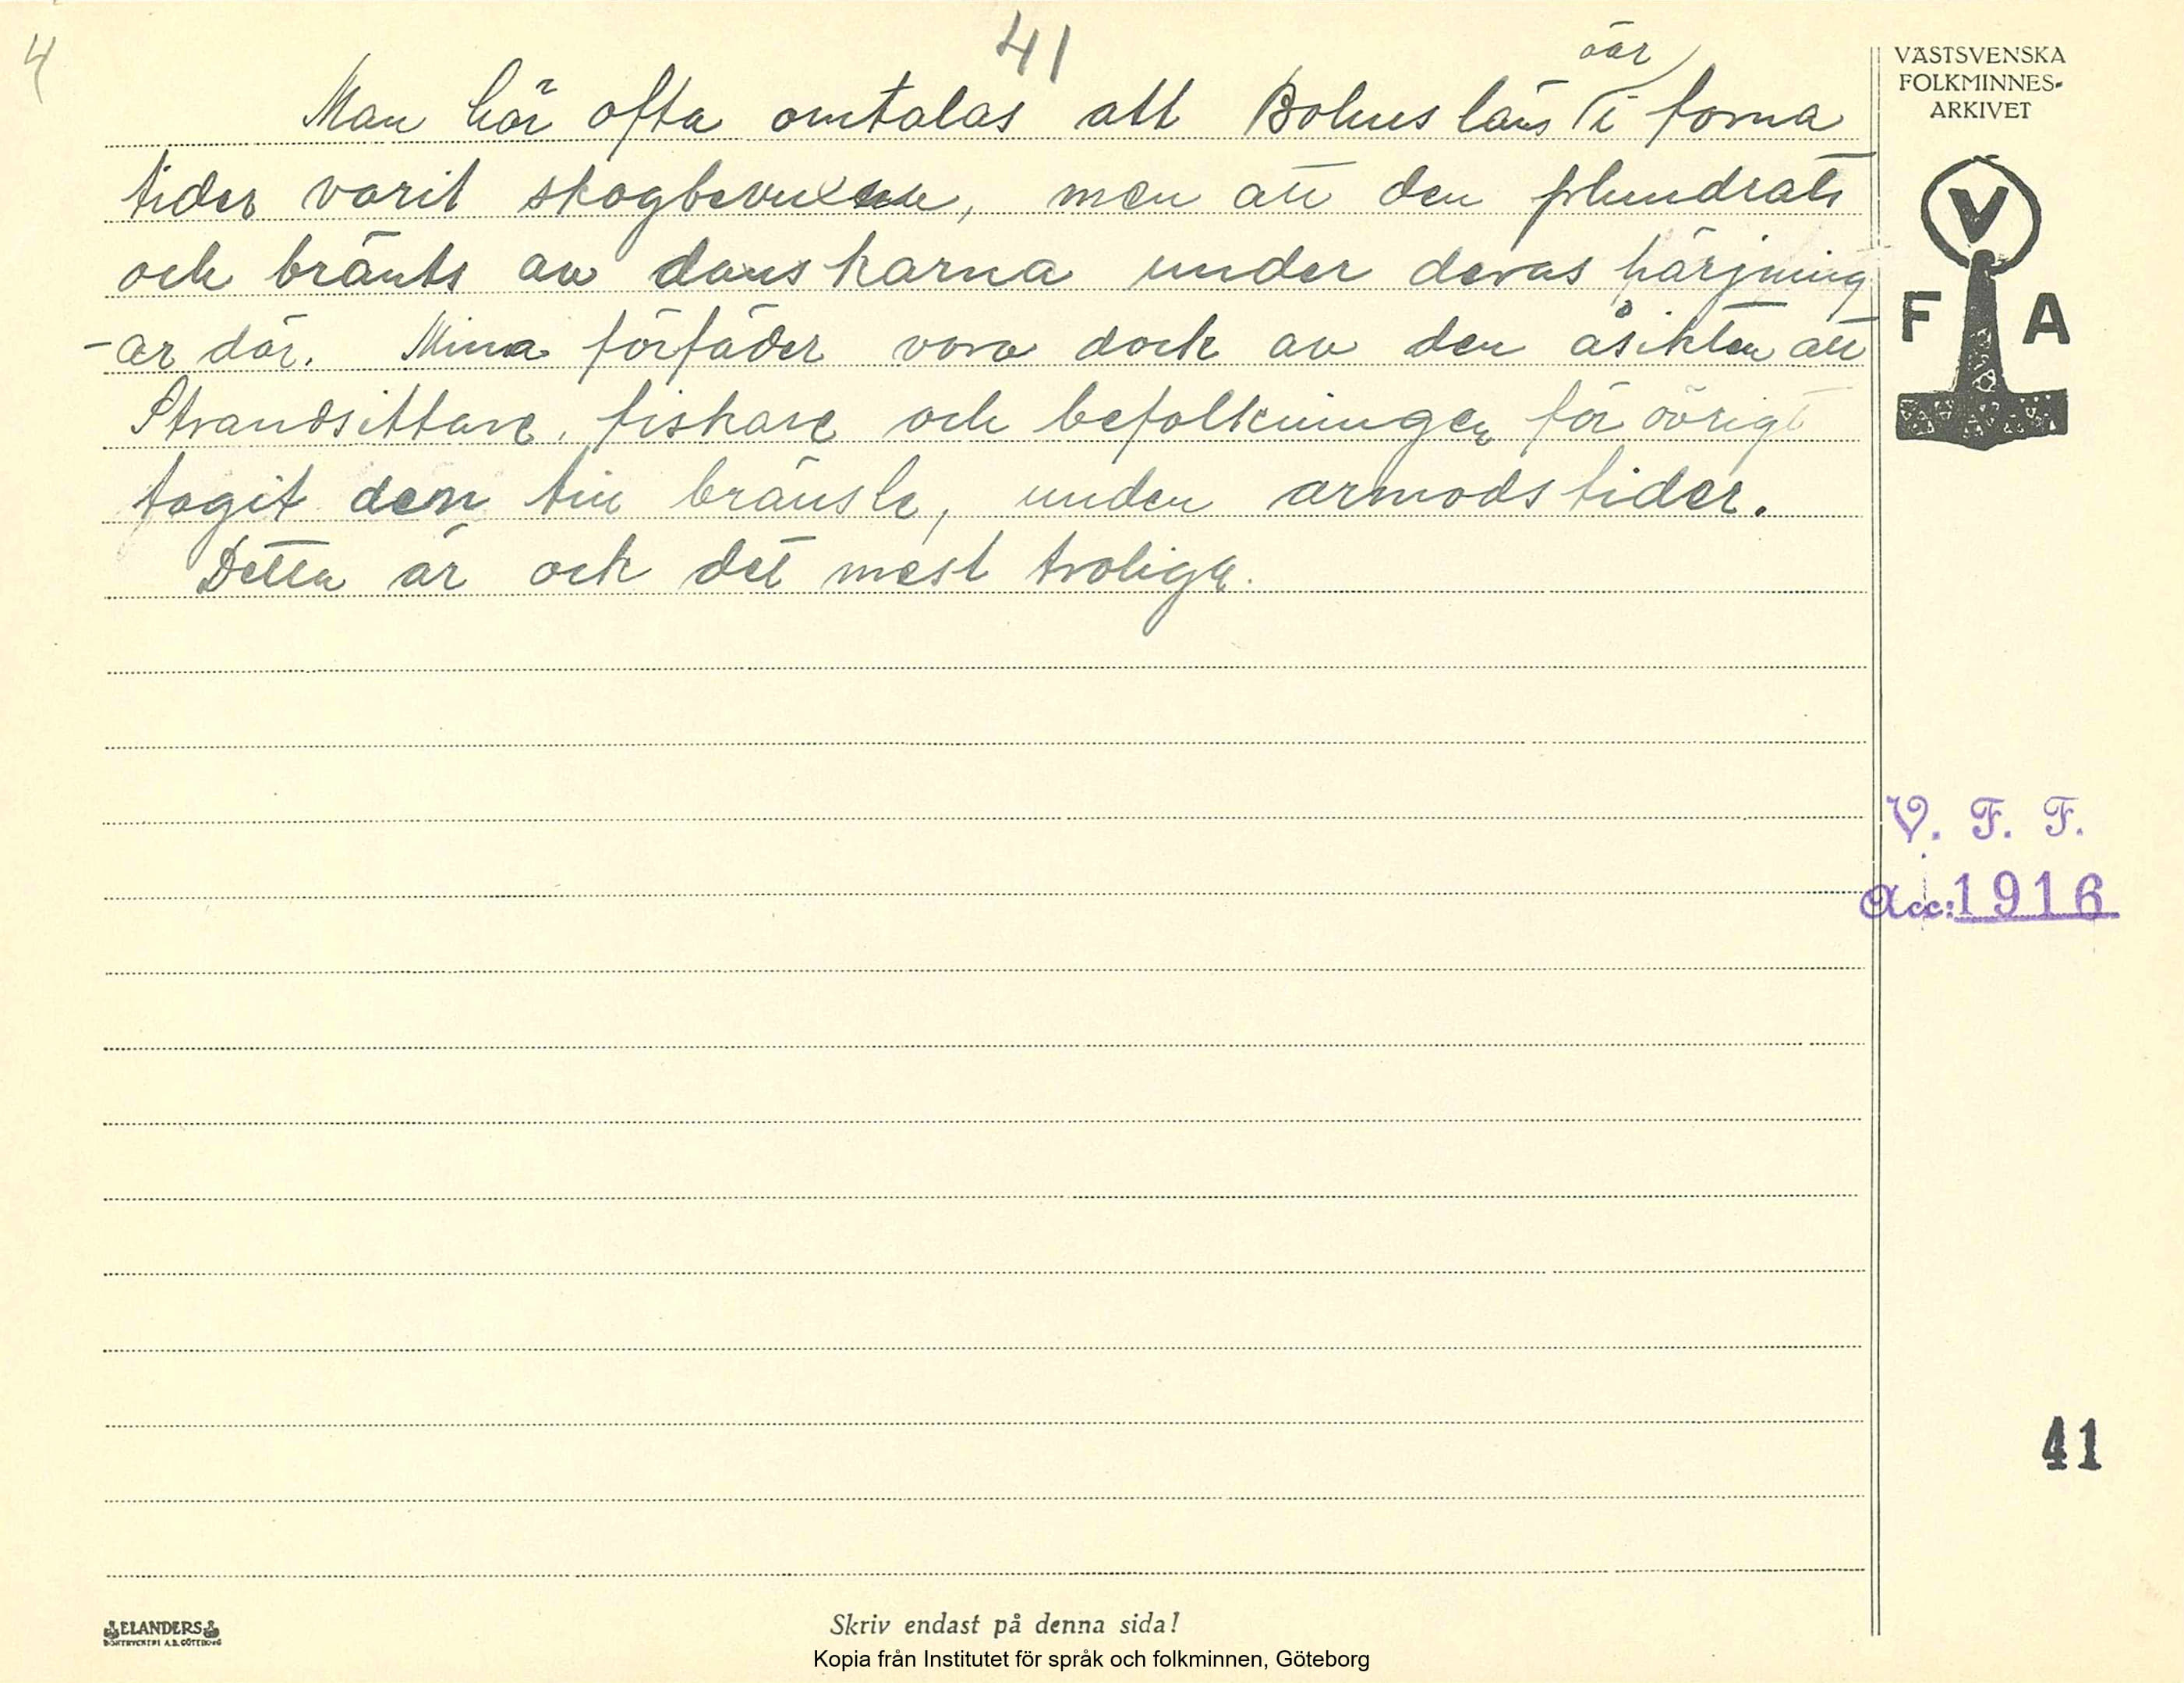 4
41
öar
Man hör ofta omtalas att Bohusläns i forna
tider varit skogbevuxna, men att den plundrats
och bränts av danskarna under deras härjning
-ar där. Mina förfäder voro dock av den åsikten att
Strandsittare, fiskare och befolkningen för övrigt
tagit den till bränsle, under armodstider.
Detta är och det mest troliga.
VÄSTSVENSKA
FOLKMINNES-
ARKIVET
V
F A
V. F. F.
Acc: 1916
41
ELANDERS
BOKTRYCKERI A.B. GÖTEBORG
Skriv endast på denna sida!
Kopia från Institutet för språk och folkminnen, Göteborg